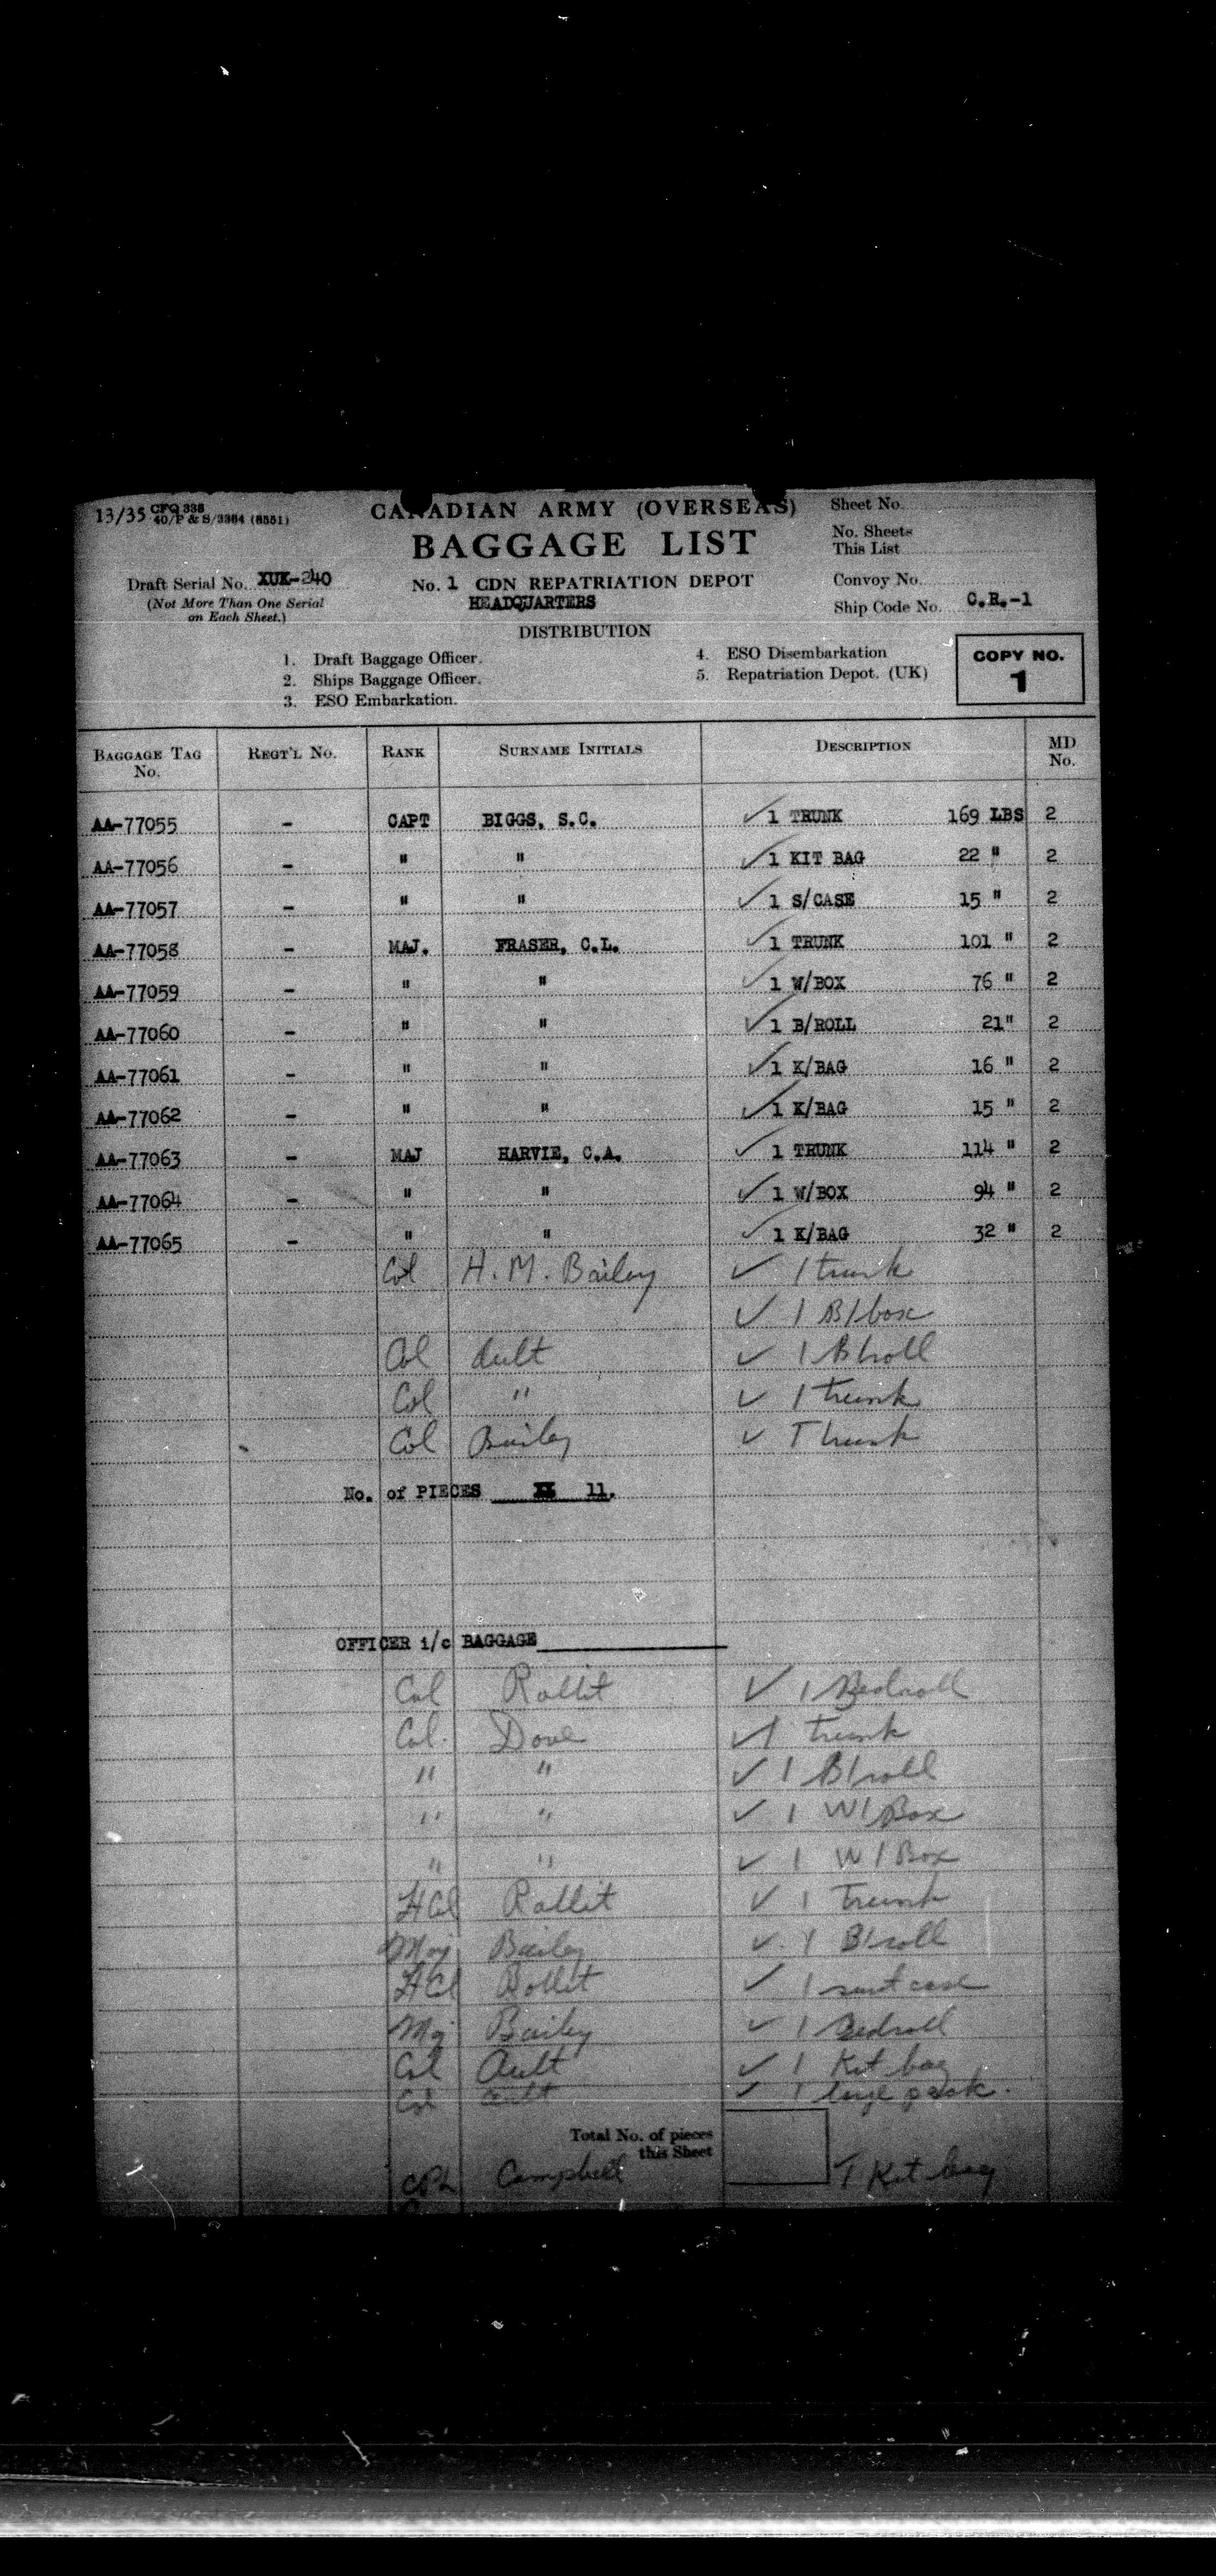 13/35 CFQ 338
40/P & S/3364 (8551)
CANADIAN ARMY (OVERSEAS)
BAGGAGE LIST
Sheet No.
No. Sheets
This List
Draft Serial No. XUK-240
(Not More Than One Serial
on Each Sheet.)
No. 1 CDN REPATRIATION DEPOT
HEADQUARTERS
Convoy No.
Ship Code No. C.R.-1
DISTRIBUTION
1. Draft Baggage Officer.
2. Ships Baggage Officer.
3. ESO Embarkation.
4. ESO Disembarkation
5. Repatriation Depot. (UK)
COPY NO.
1
BAGGAGE TAG No. REGT'L No. RANK SURNAME INITIALS DESCRIPTION MD No.
AA-77055 - CAPT BIGGS, S.C. ✓ 1 TRUNK 169 LBS 2
AA-77056 - " " ✓ 1 KIT BAG 22 " 2
AA-77057 - " " ✓ 1 S/CASE 15 " 2
AA-77058 - MAJ. FRASER, C.L. ✓ 1 TRUNK 101 " 2
AA-77059 - " " ✓ 1 W/BOX 76 " 2
AA-77060 - " " ✓ 1 B/ROLL 21" 2
AA-77061 - " " ✓ 1 K/BAG 16 " 2
AA-77062 - " " ✓ 1 K/BAG 15 " 2
AA-77063 - MAJ HARVIE, C.A. ✓ 1 TRUNK 114 " 2
AA-77064 - " " ✓ 1 W/BOX 94 " 2
AA-77065 - " " ✓ 1 K/BAG 32 " 2
Col H. M. Bailey ✓ 1 trunk
✓ 1 B/box
Col Ault ✓ 1 B/roll
Col " ✓ 1 trunk
Col Bailey ✓ 1 trunk
No. of PIECES 11.
OFFICER i/c BAGGAGE
Col ✓ 1 Bedroll
Col. Dove ✓ 1 trunk
" " ✓ 1 B/roll
" " ✓ 1 W/Box
" " ✓ 1 W/Box
✓ 1 Trunk
Maj Bailey ✓ 1 B/roll
✓ 1 suit case
Maj Bailey ✓ 1 Bedroll
Col Ault ✓ 1 Kit bag
Col Ault ✓ 1 large pack.
Total No. of pieces
this Sheet
CPL Campbell 1 Kit bag